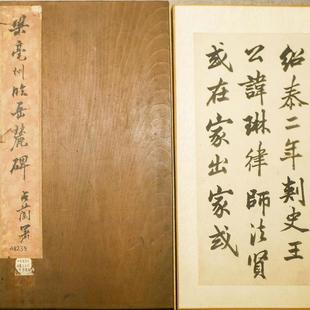 梁亳州臨岳麓碑
紹泰二年刺史王
公諱琳律師法賢
或在家出家或